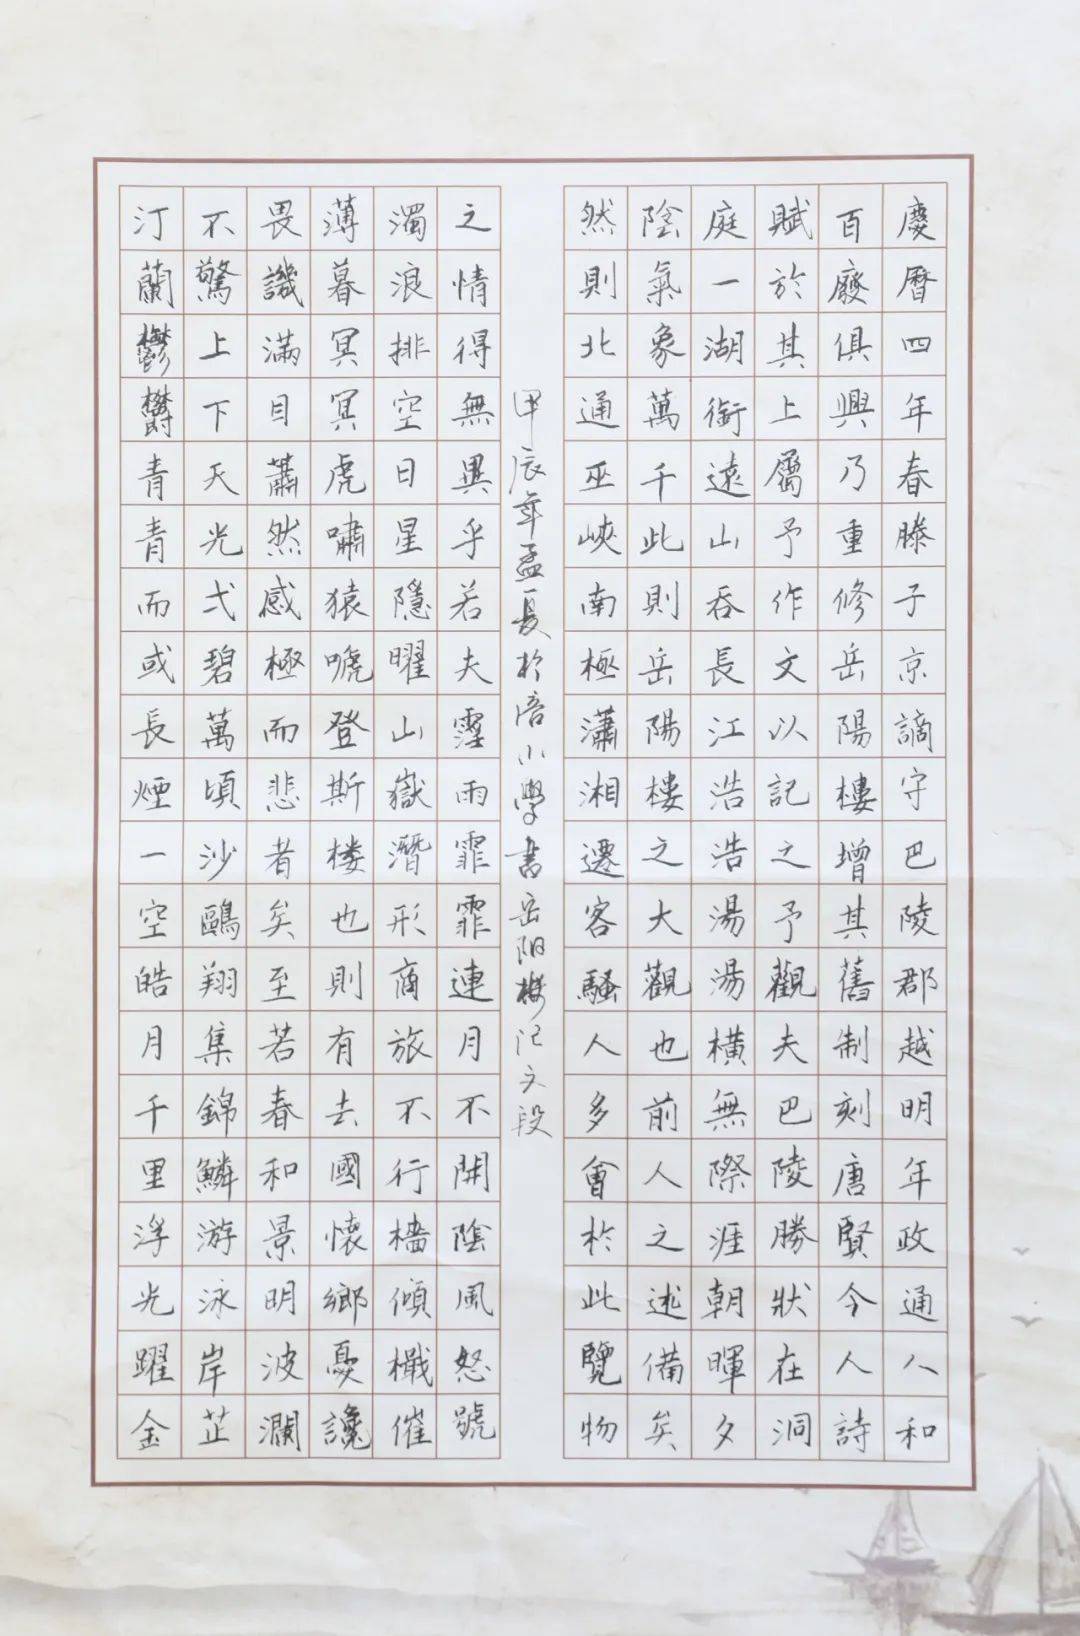 慶曆四年春滕子京謫守巴陵郡越明年政通人和
百廢俱興乃重修岳陽樓增其舊制刻唐賢今人詩
賦於其上屬予作文以記之予觀夫巴陵勝狀在洞
庭一湖銜遠山吞長江浩浩湯湯橫無際涯朝暉夕
陰氣象萬千此則岳陽樓之大觀也前人之述備矣
然則北通巫峽南極瀟湘遷客騷人多會於此覽物
甲辰年孟夏於小學書岳阳楼记文段
之情得無異乎若夫霪雨霏霏連月不開陰風怒號
濁浪排空日星隱曜山嶽潛形商旅不行檣傾檝催
薄暮冥冥虎嘯猿嗁登斯楼也則有去國懷鄉憂讒
畏譏滿目蕭然感極而悲者矣至若春和景明波瀾
不驚上下天光弌碧萬頃沙鷗翔集錦鱗游泳岸芷
汀蘭鬱鬱青青而或長煙一空皓月千里浮光躍金